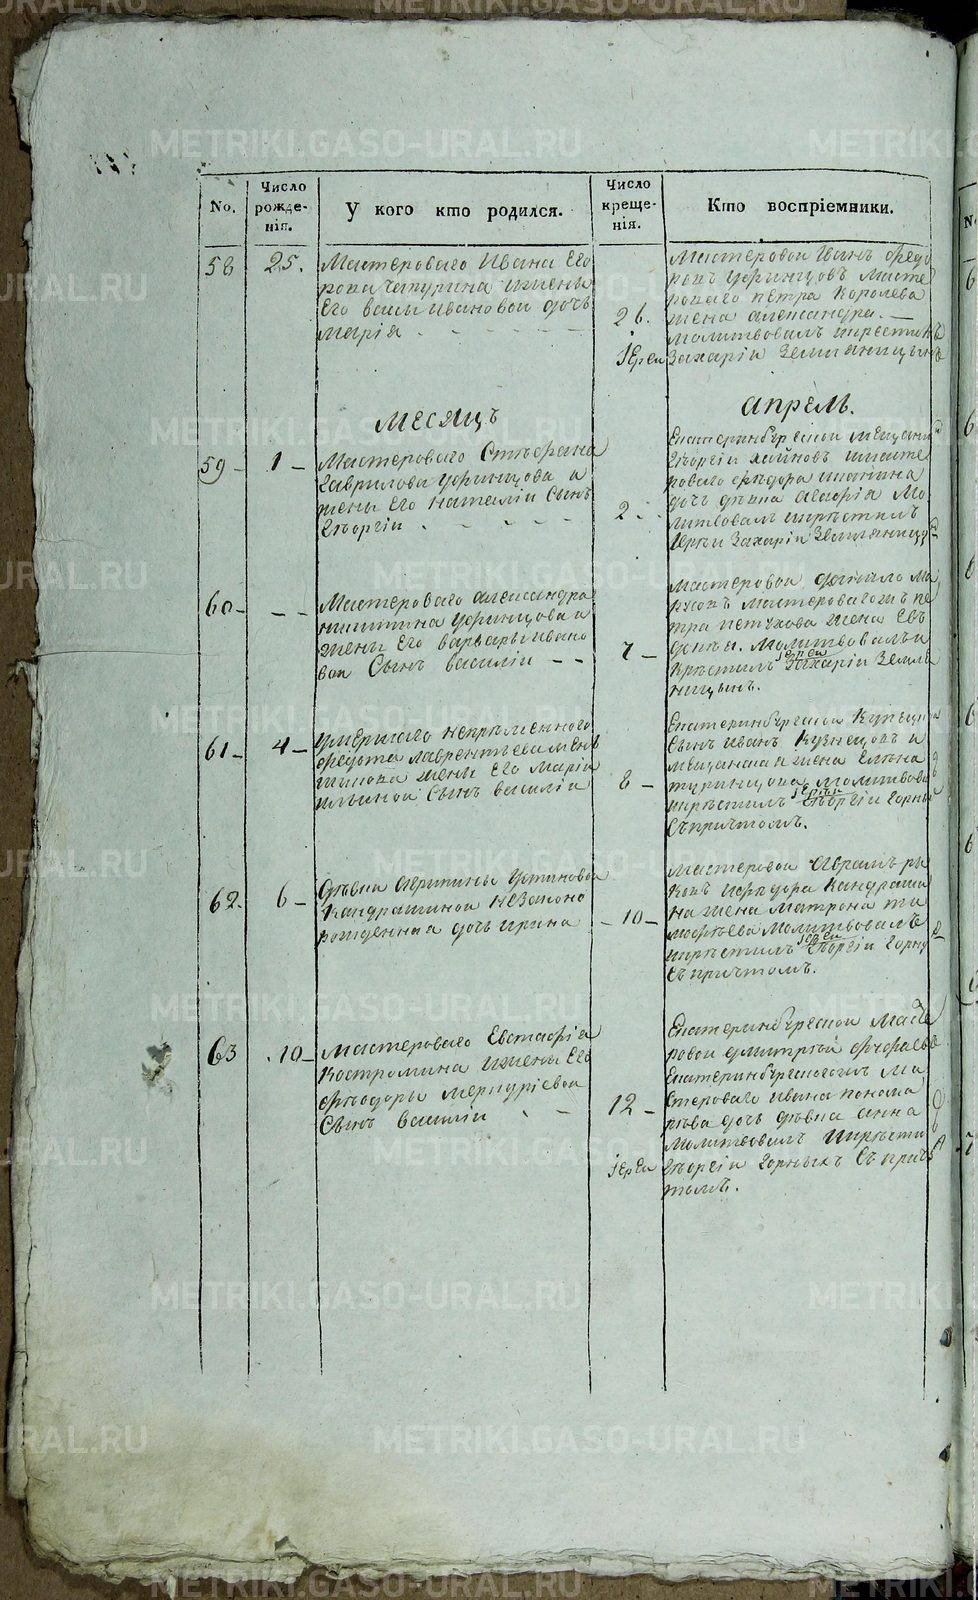 METRIKI.GASO-URAL.RU
No.
Число рожде-нія.
У кого кто родился.
Число креще-нія.
Кто воспріемники.
58
25.
Мастероваго Ивана Его
рова Чипурина жены
Его васы ивановой дочь
марія
26.
Мастеровой Иванъ федо
ровъ уфинцовъ масте
роваго петра Королева
жена александра.
молитвовалъ икрестилъ
Іерей Захаріи Земляницынъ
Месяцъ апрель.
59
1
Мастероваго Стефана
Гаврилова уфинцова и
жены Его наталіи Сынъ
Георгіи
2.
Екатеринбургскои мещани
Георгіи
роваго федора
дочь девка агафія Мо
литвовалъ икрестилъ
Іереи Захаріи Земляницы
60
Мастероваго александра
никитина уфинцова и
жены Его варвары ивано
вой Сынъ василіи
7
Мастеровои данило ма
ковъ мастероваго пе
тра петухова жена Ев
докея. Молитвовалъ и
крестилъ Іереи Захаріи Земля
ницынъ.
61
4
умершаго непременного
федота лаврентьева мен
шикова жены Его маріи
ильиной Сынъ василіи
8
Екатеринбургскои Купецк
Сынъ иванъ Кузнецовъ и
мещанская жена Елена
молитвова
икрестилъ Іереи Георгіи Горны
Съпричтомъ.
62.
6
девки агрипины устиновои
Кандрашиной незаконо
рожденная дочь ирина
10
мастеровои Аврамъ ры
ковъ исидора Кандраши
на жена матрона ти
мофеева молитвовалъ
икрестилъ Іереи Георгіи Горны
Съпричтомъ.
63
10
мастероваго Евстафія
Костромина ижены Его
федоры меркуріевои
Сынъ василіи
12
Екатеринбургскои масте
ровои дмитрій
Екатеринбургскогожъ ма
стероваго ивана понома
рева дочь девка анна
молитвовалъ икрести
Іереи Георгіи Горныхъ Съприч
томъ.